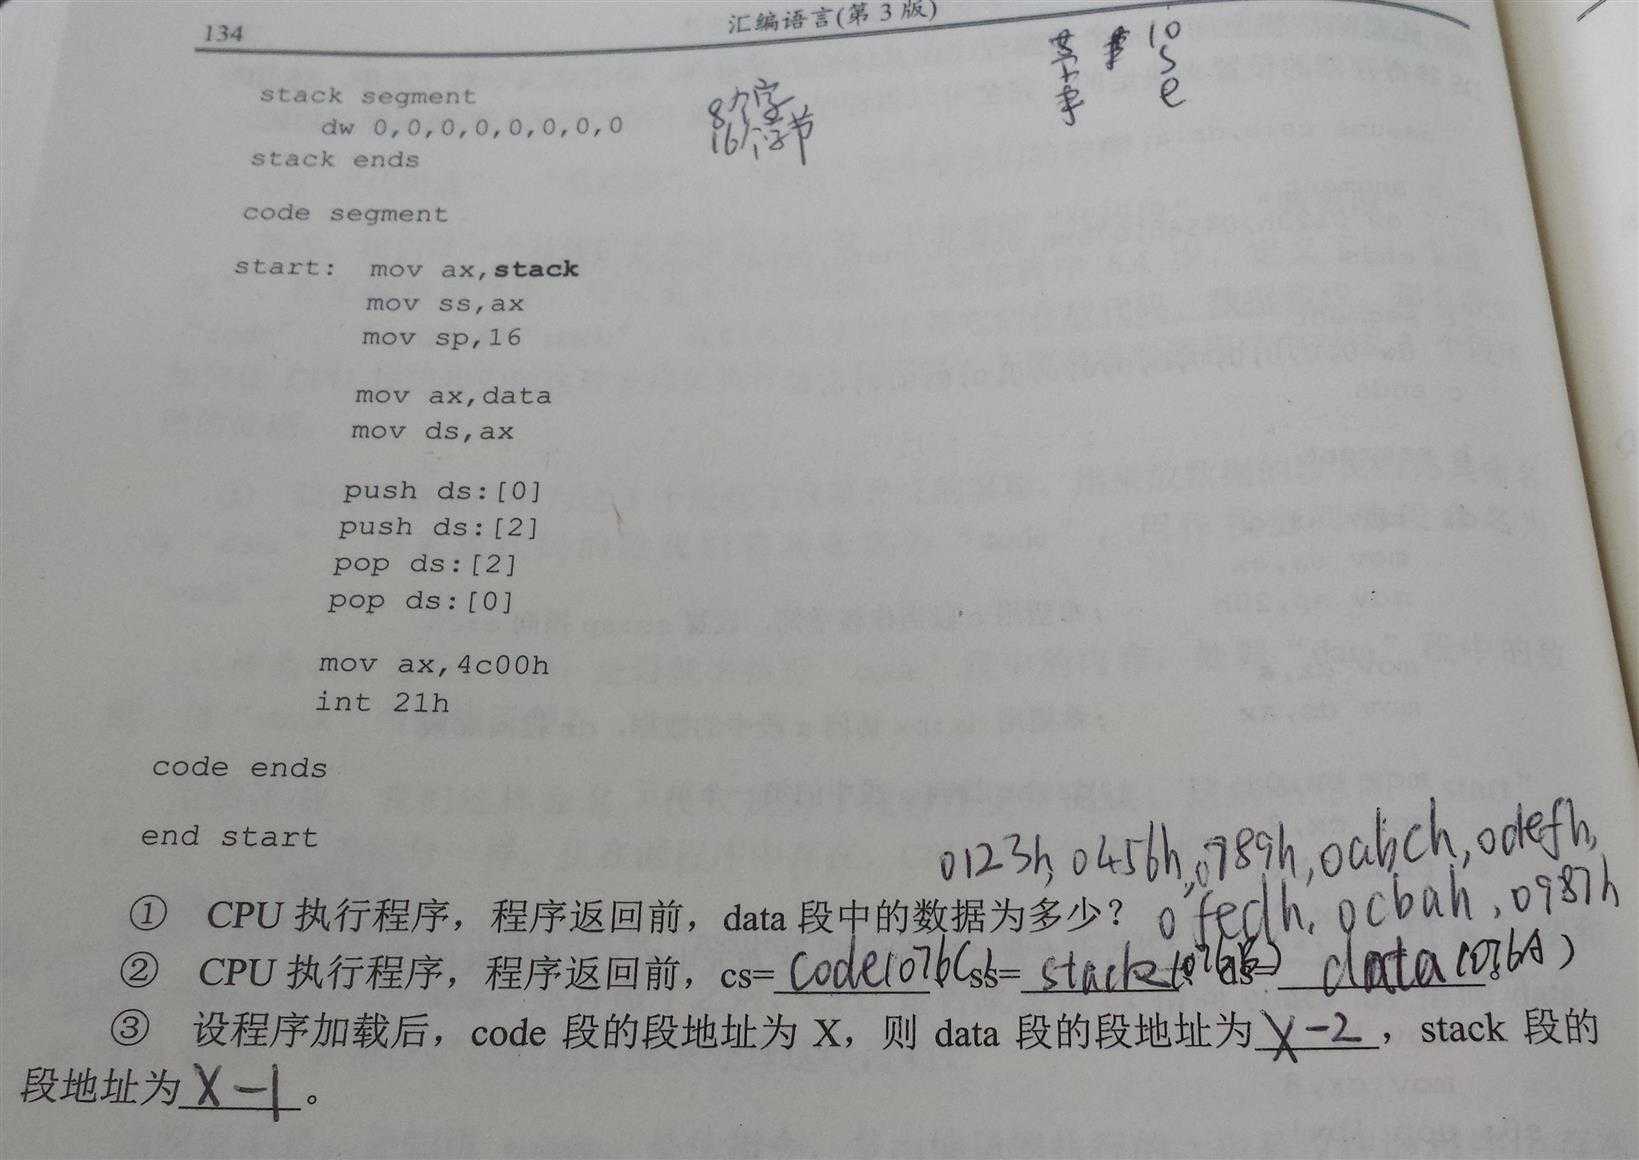 134
汇编语言(第 3 版)
10
S
e
stack segment
dw 0,0,0,0,0,0,0,0
stack ends
8个字
16个字节
code segment
start: mov ax,stack
mov ss,ax
mov sp,16
mov ax,data
mov ds,ax
push ds:[0]
push ds:[2]
pop ds:[2]
pop ds:[0]
mov ax,4c00h
int 21h
code ends
end start
0123h, 0456h, 0789h, 0abch, 0defh,
0fedh, 0cbah, 0987h
① CPU 执行程序，程序返回前，data 段中的数据为多少？
② CPU 执行程序，程序返回前，cs=code(076C ss=stack(076b) ds=data(076A)
③ 设程序加载后，code 段的段地址为 X，则 data 段的段地址为X-2，stack 段的
段地址为X-1。